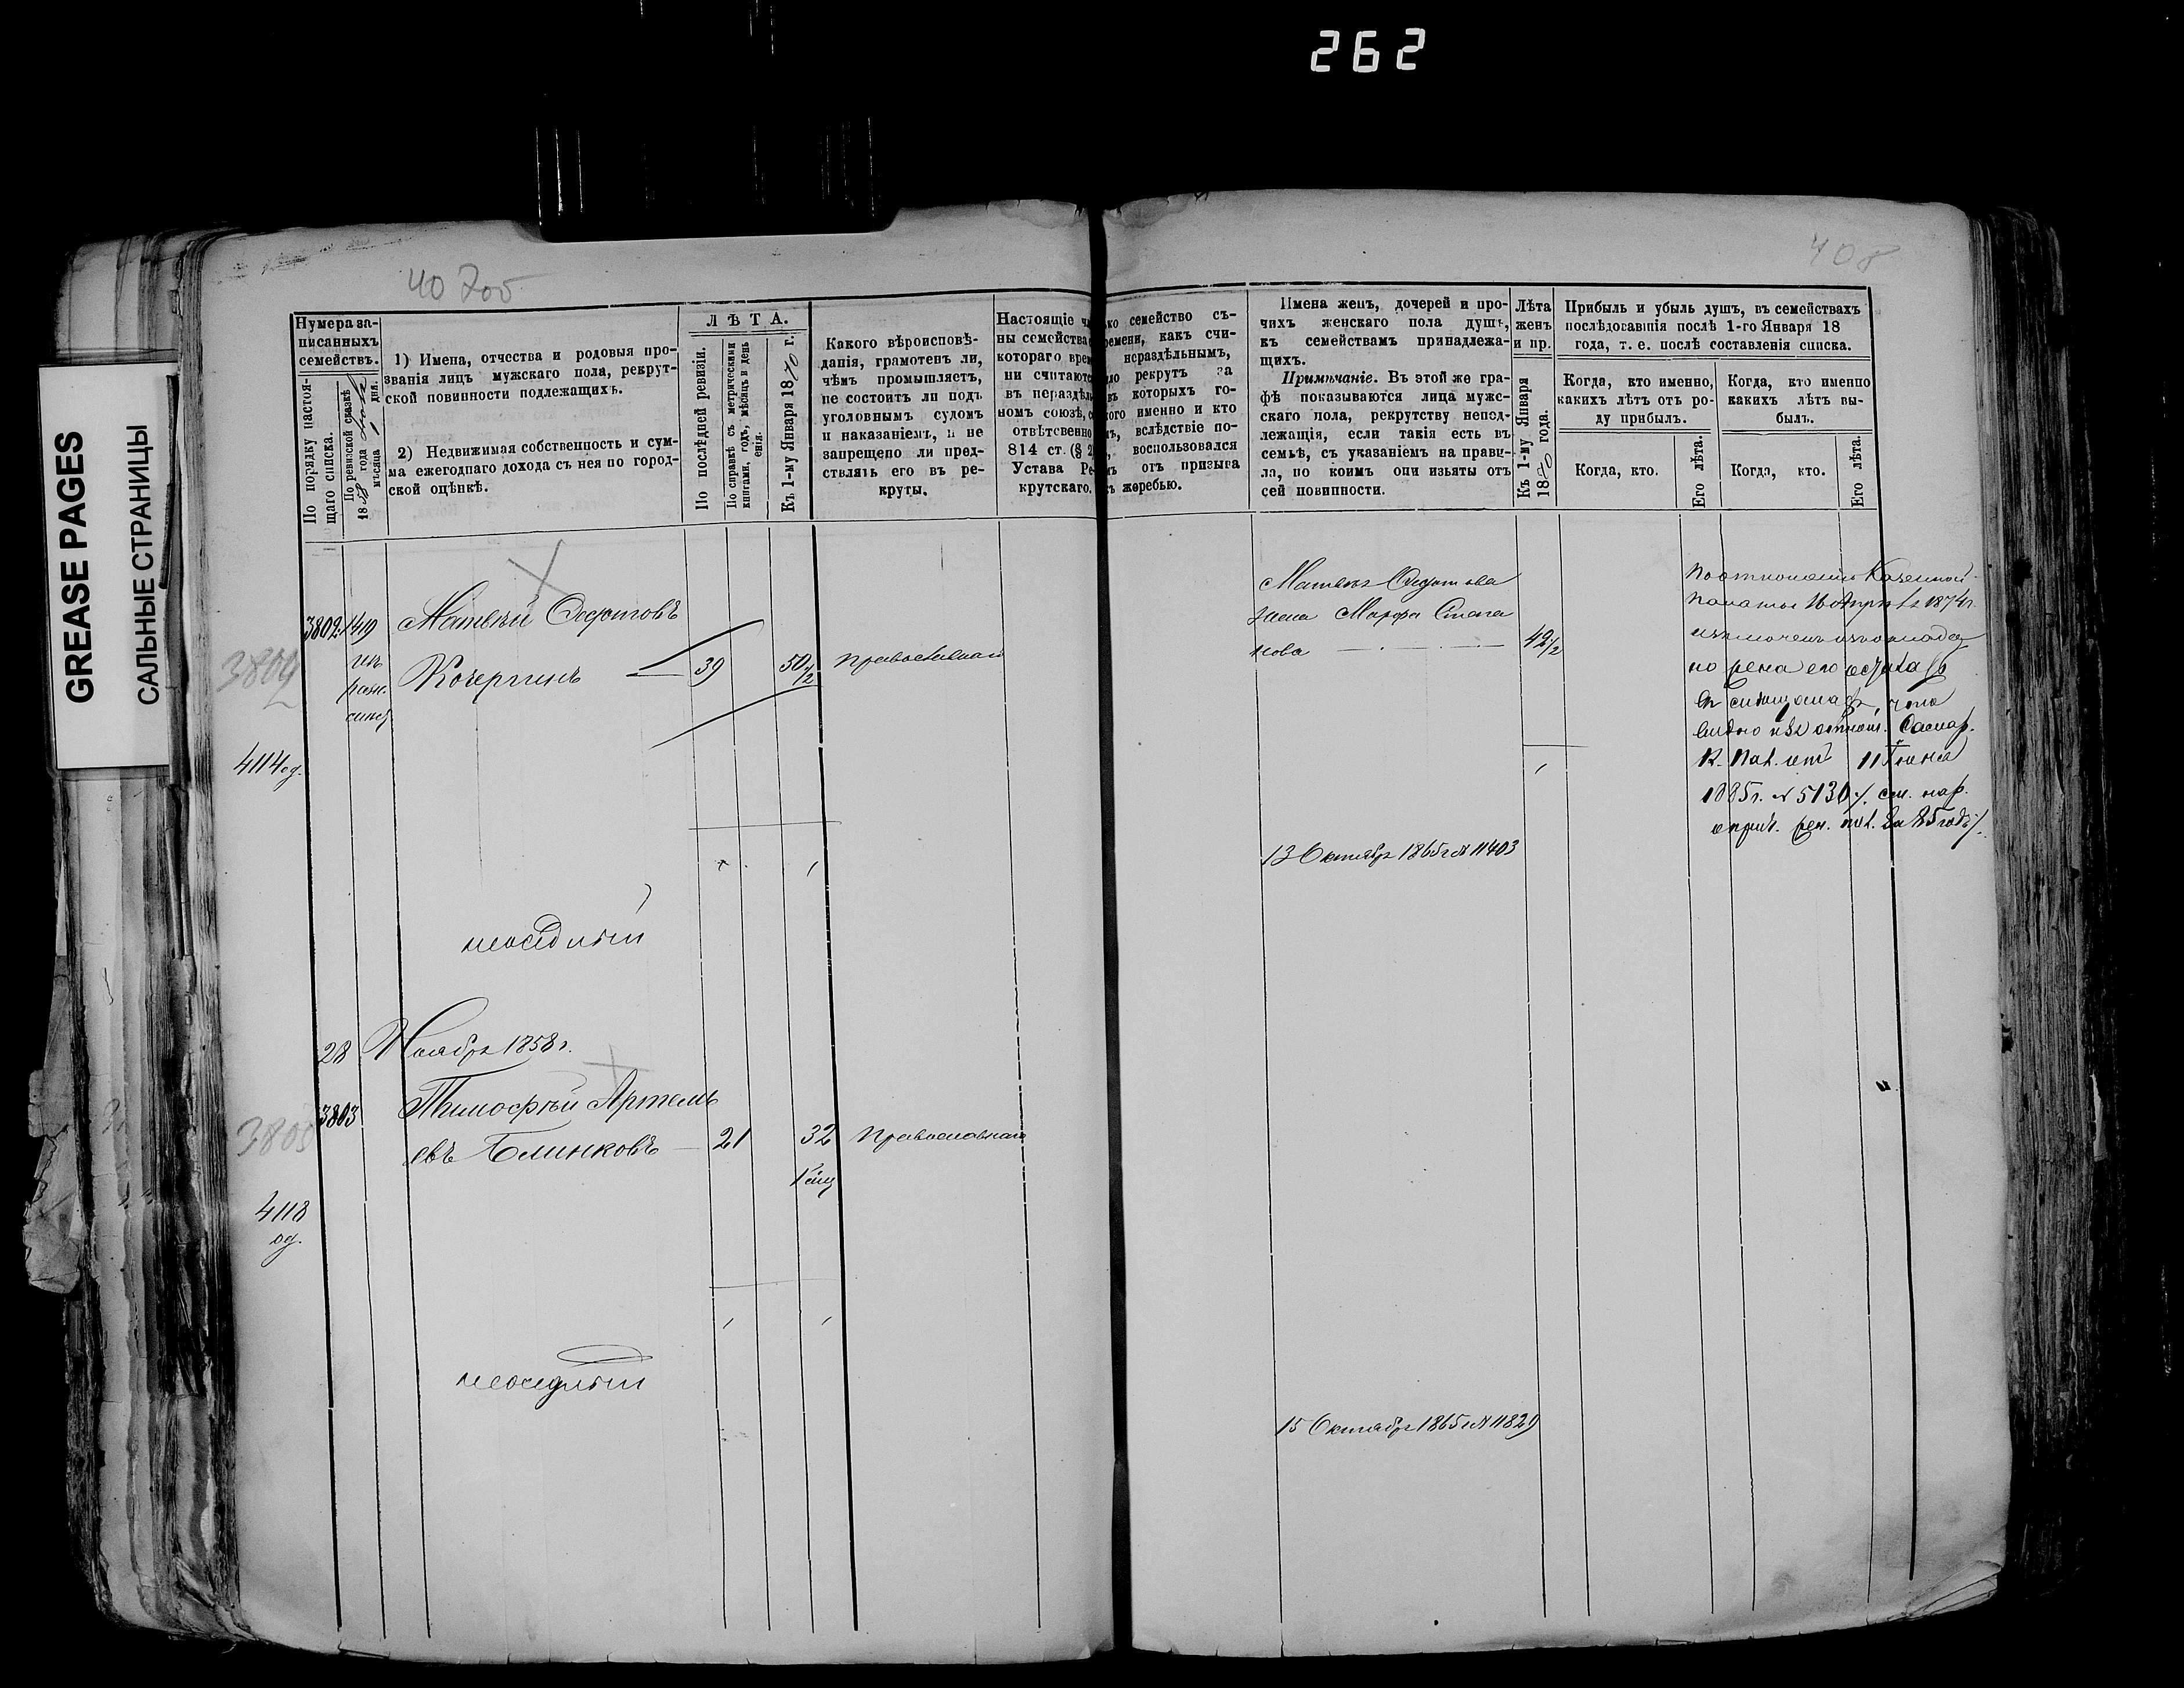 262
GREASE PAGES
САЛЬНЫЕ СТРАНИЦЫ
408
Нумера за-
писанныхъ
семействъ.
По порядку настоя-
щаго списка.
По ревизской сказкѣ
1858 года
мѣсяца дня.
1) Имена, отчества и родовыя про-
званія лицъ мужскаго пола, рекрут-
ской повинности подлежащихъ.
2) Недвижимая собственность и сум-
ма ежегоднаго дохода съ нея по город-
ской оцѣнкѣ.
ЛѢТА.
По послѣдней ревизіи.
По справкѣ съ метрическими
книгами, годъ, мѣсяцъ и день
енія.
Къ 1-му Января 1870 г.
Какого вѣроисповѣ-
данія, грамотенъ ли,
чѣмъ промышляетъ,
не состоитъ ли подъ
уголовнымъ судомъ
и наказаніемъ, и не
запрещено ли пред-
ставлять его въ ре-
круты.
Настоящіе
ны семейства
котораго вре
ни считаютс
въ нераздѣл
номъ союзѣ,
отвѣтственно
814 ст. (§
Устава Ре
крутскаго.
ко семейство съ-
ремени, какъ счи-
нераздѣльнымъ,
до рекрутъ за
въ которыхъ го-
кого именно и кто
вслѣдствіе по-
воспользовался
отъ призыва
жеребью.
Имена женъ, дочерей и про-
чихъ женскаго пола душъ,
къ семействамъ принадлежа-
щихъ.
Примѣчаніе. Въ этой же гра-
фѣ показываются лица мужс-
скаго пола, рекрутству непод-
лежащія, если такія есть въ
семьѣ, съ указаніемъ на прави-
ла, по коимъ они изъяты отъ
сей повинности.
Лѣта
женъ
и пр.
Къ 1-му Января
1870 года.
Прибыль и убыль душъ, въ семействахъ
послѣдовавшія послѣ 1-го Января 18
года, т. е. послѣ составленія списка.
Когда, кто именно,
какихъ лѣтъ отъ ро-
ду прибылъ.
Когда, кто именно
какихъ лѣтъ вы-
былъ.
Когда, кто.
Его лѣта.
Когда, кто.
Его лѣта.
3802 1419 Матвѣй Федотовъ
Кочергинъ 39 50 1/2 православнаго
3802
4114 од.
Матвѣя Федотова
жена Марфа Степа
нова 49 1/2
По отношенію Казенной
Палаты 16 Апрѣля 1874 г.
исключенъ изъ оклада
но жена его
что
видно изъ отнош. Самар.
К. Пал. отъ 11 Іюня
1885 г. № 5130
13 Октября 1865 г № 11403
неосѣдлый
28 Ноября 1858 г.
3803 Тимофѣй Артемь
евъ Блинковъ 21 32 Православнаго
3803
4118
од.
неосѣдлый
15 Октября 1865 г № 11829